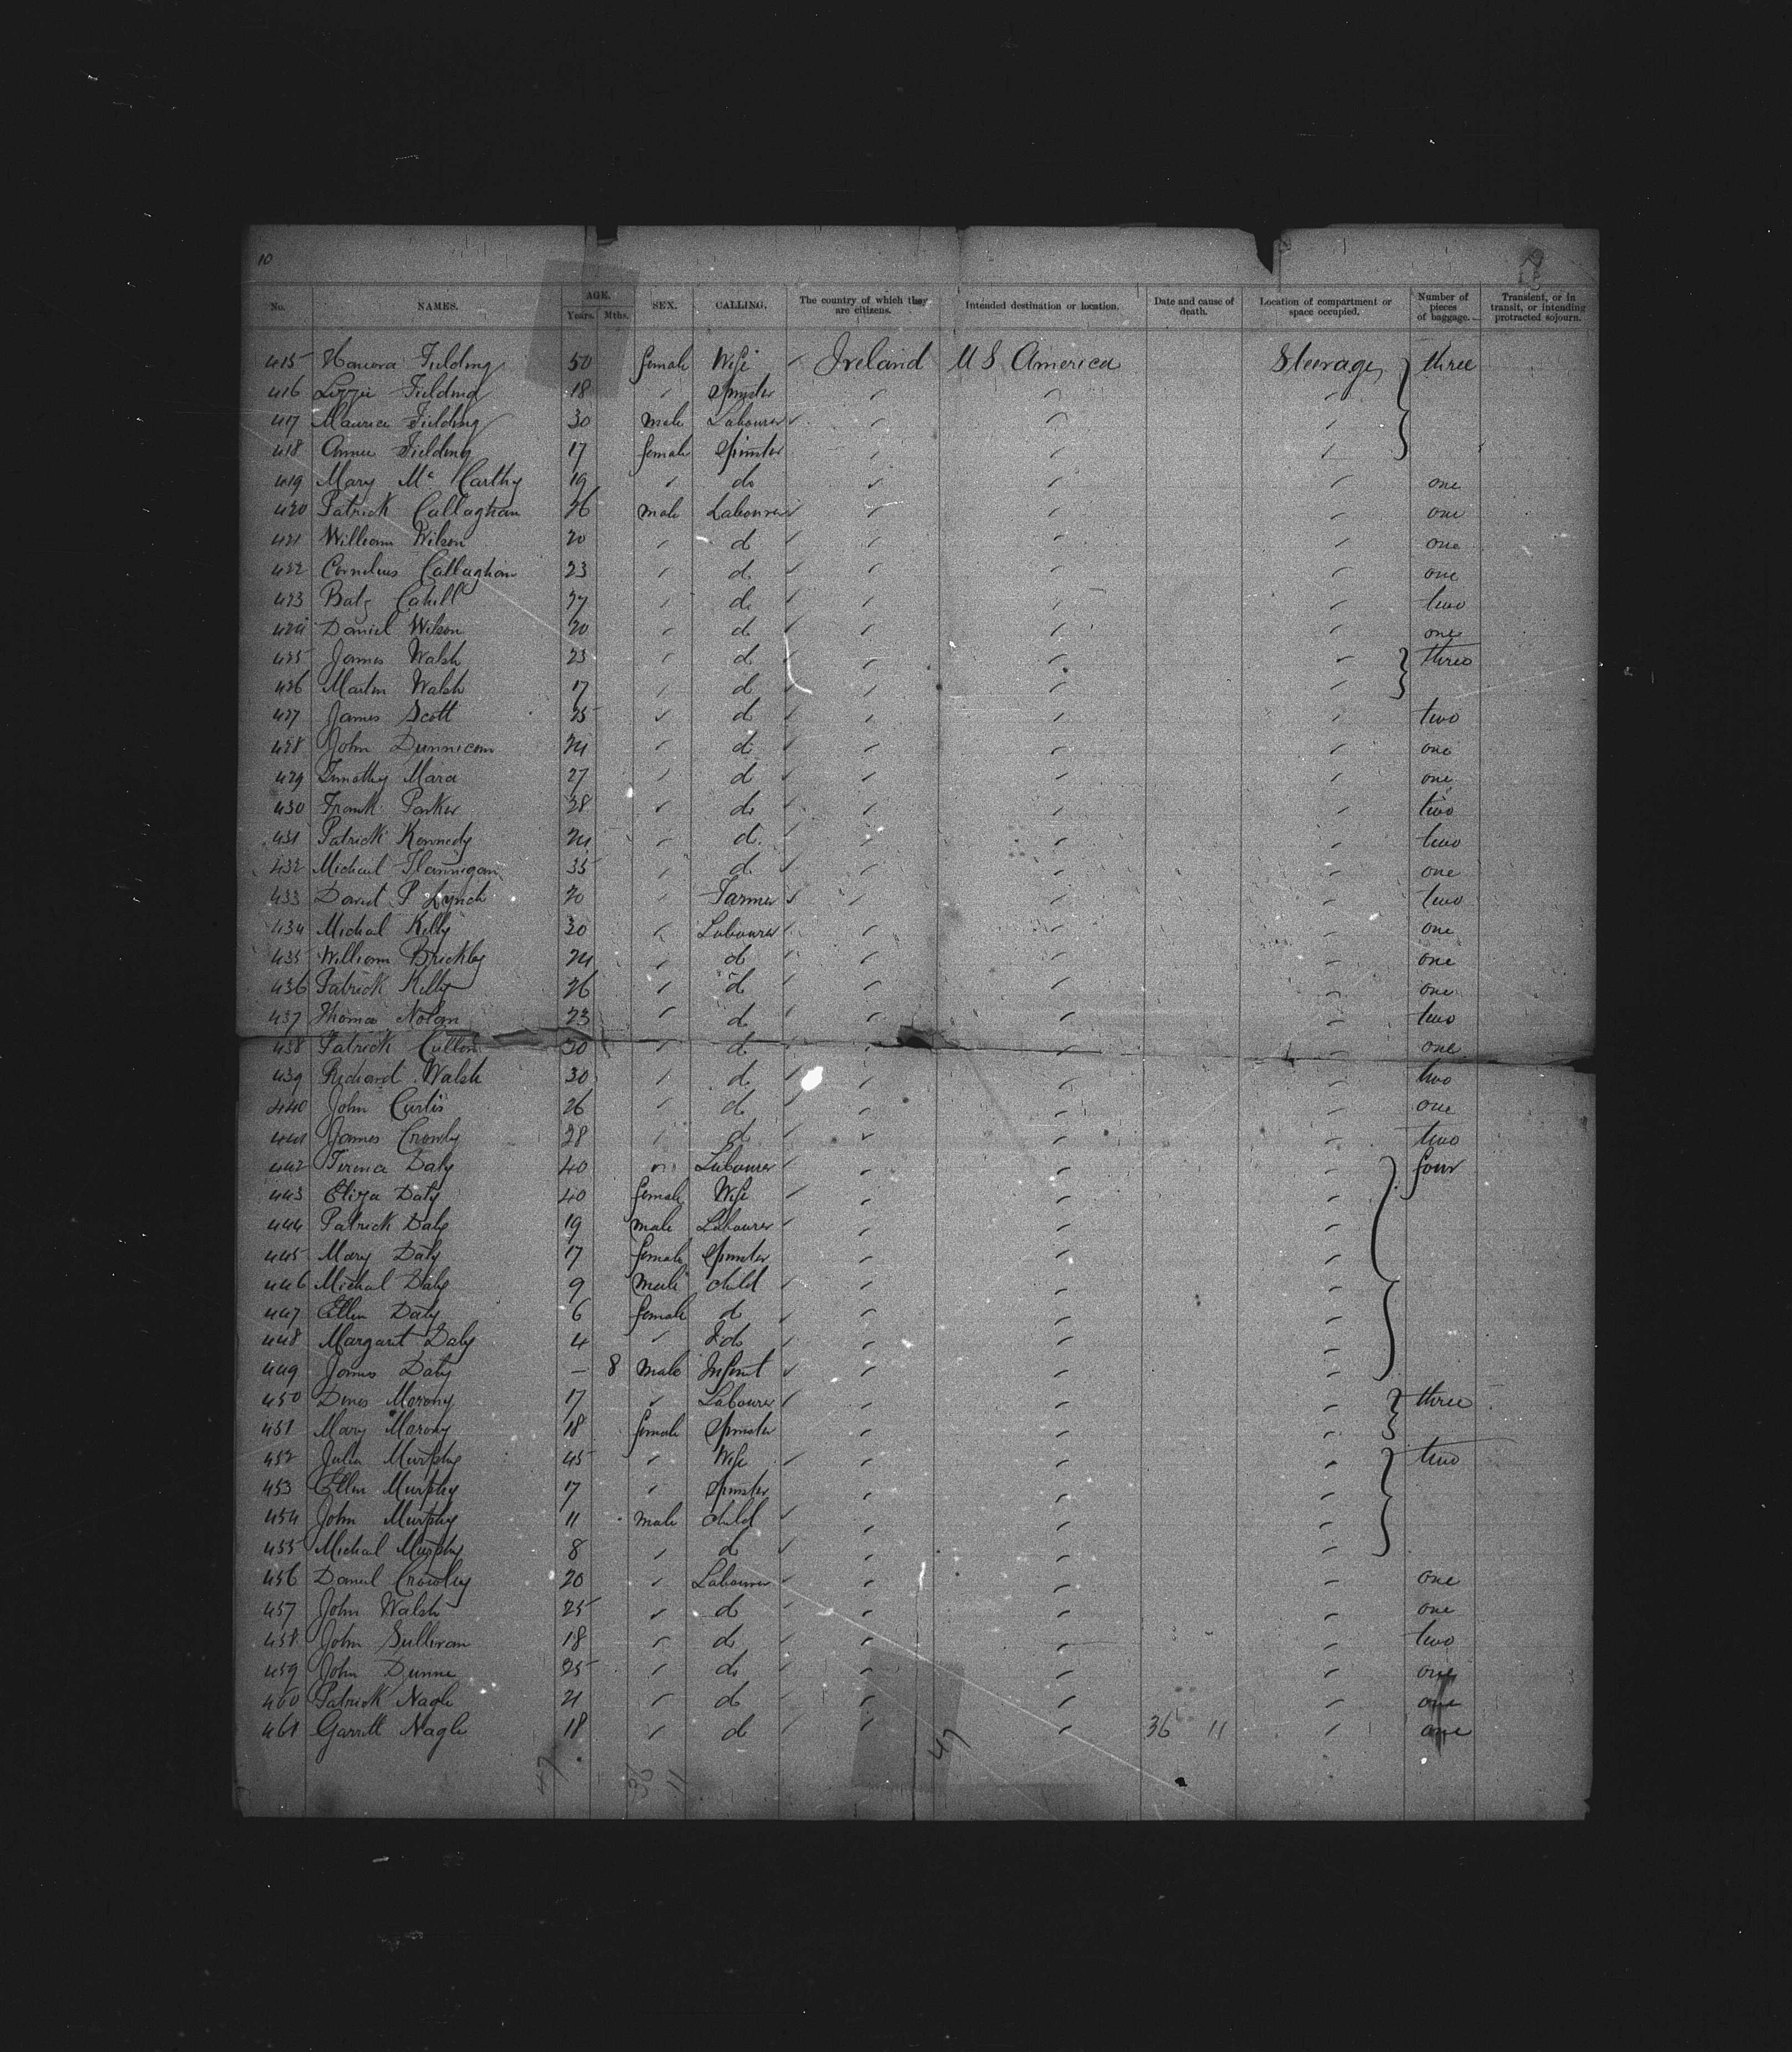 10
No. NAMES. AGE. Years. Mths. SEX. CALLING. The country of which they are citizens. Intended destination or location. Date and cause of death. Location of compartment or space occupied. Number of pieces of baggage. Transient, or in transit, or intending protracted sojourn.
415 Hanora Fielding 50 female Wife Ireland U S America Steerage three
416 Lizzie Fielding 18 Spinster
417 Maurice Fielding 30 male Labourer
418 Annie Fielding 17 female Spinster
419 Mary Mc Carthy 19 do one
420 Patrick Callaghan 26 male Labourer one
421 William Wilson 20 do one
422 Cornelius Callaghan 23 do one
423 Cahill 27 do two
424 Daniel Wilson 20 do one
425 James Walsh 23 do three
426 Martin Walsh 17 do
427 James Scott 25 do two
428 John Dunnican 24 do one
429 Timothy Mara 27 do one
430 Frank Parker 28 do two
431 Patrick Kennedy 24 do two
432 Michael Flannigan 35 do one
433 David P Lynch 20 Farmer two
434 Michael Kelly 30 Labourer one
435 William Brickley 24 do one
436 Patrick Kelly 26 do one
437 Thomas Nolan 23 do two
438 Patrick 30 do one
439 Richard Walsh 30 do two
440 John Curtis 26 do one
441 James Crowly 28 do two
442 Daly 40 Labourer four
443 Eliza Daly 40 female Wife
444 Patrick Daly 19 male Labourer
445 Mary Daly 17 female Spinster
446 Michal Daly 9 male child
447 Ellen Daly 6 female do
448 Margaret Daly 4 do
449 James Daly — 8 male Infant
450 Denis Morony 17 Labourer three
451 Mary Morony 18 female Spinster
452 Julia Murphy 45 Wife two
453 Ellen Murphy 17 Spinster
454 John Murphy 11 male child
455 Michal Murphy 8 do
456 Daniel Crowley 20 Labourer one
457 John Walsh 25 do one
458 John Sullivan 18 do two
459 John Dunne 25 do one
460 Patrick Nagle 21 do one
461 Garrett Nagle 18 do 36 11 one
47 36 11 47